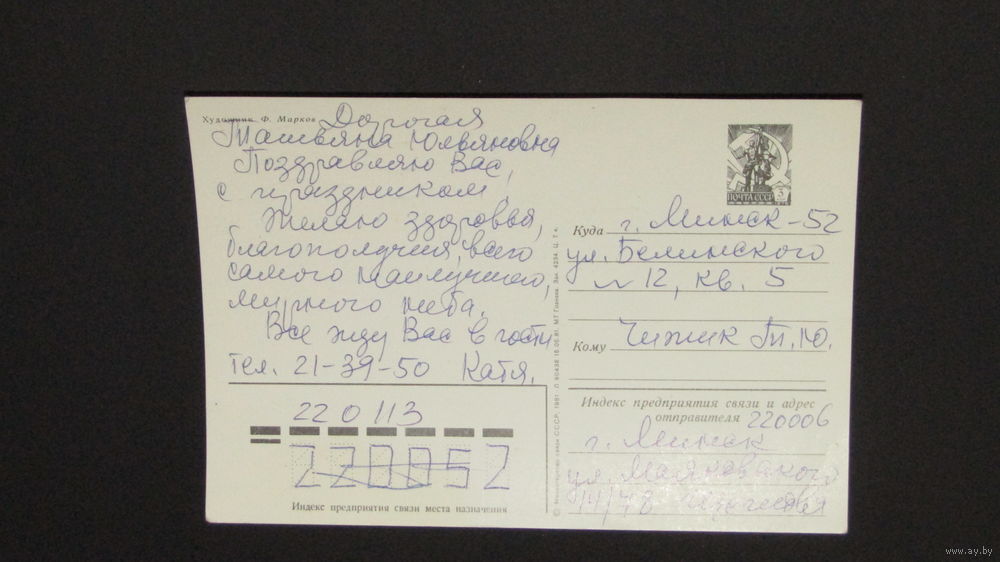 Художник Ф. Марков
Дорогая
Татьяна Юльяновна
Поздравляю Вас,
с праздником.
Желаю здоровья,
благополучия, всего
самого наилучшего,
мирного неба.
Все жду Вас в гости
тел. 21-39-50 Катя.
220113
220052
Индекс предприятия связи места назначения
ПОЧТА СССР 3
Куда г. Минск-52
ул. Белинского
12, кв. 5
Кому Чижик Т.Ю.
Индекс предприятия связи и адрес
отправителя 220006
г. Минск
ул. Маяковского
14/48
www.ay.by